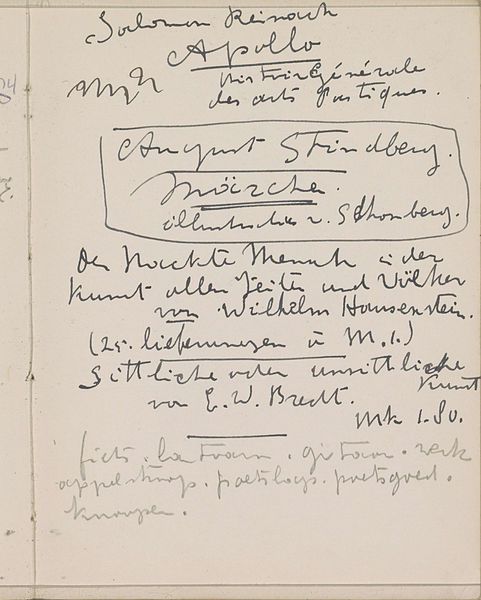 Salomon Reinach
Apollo
Histoire Générale
des arts Plastiques.
August Strindberg.
Märchen.
illustrationen v. Schomberg.
Der Nackte Mensch in der
Kunst allen Zeiten und Völker
von Wilhelm Hausenstein.
(25. lieferungen à M. 1.)
Sittliche oder unsittliche
Kunst
von E. W. Bredt.
Mk 1.80.
fiets. lantaarn. gitaar.
appelstroop. poetslaps. poetsgoed.
knoopen.